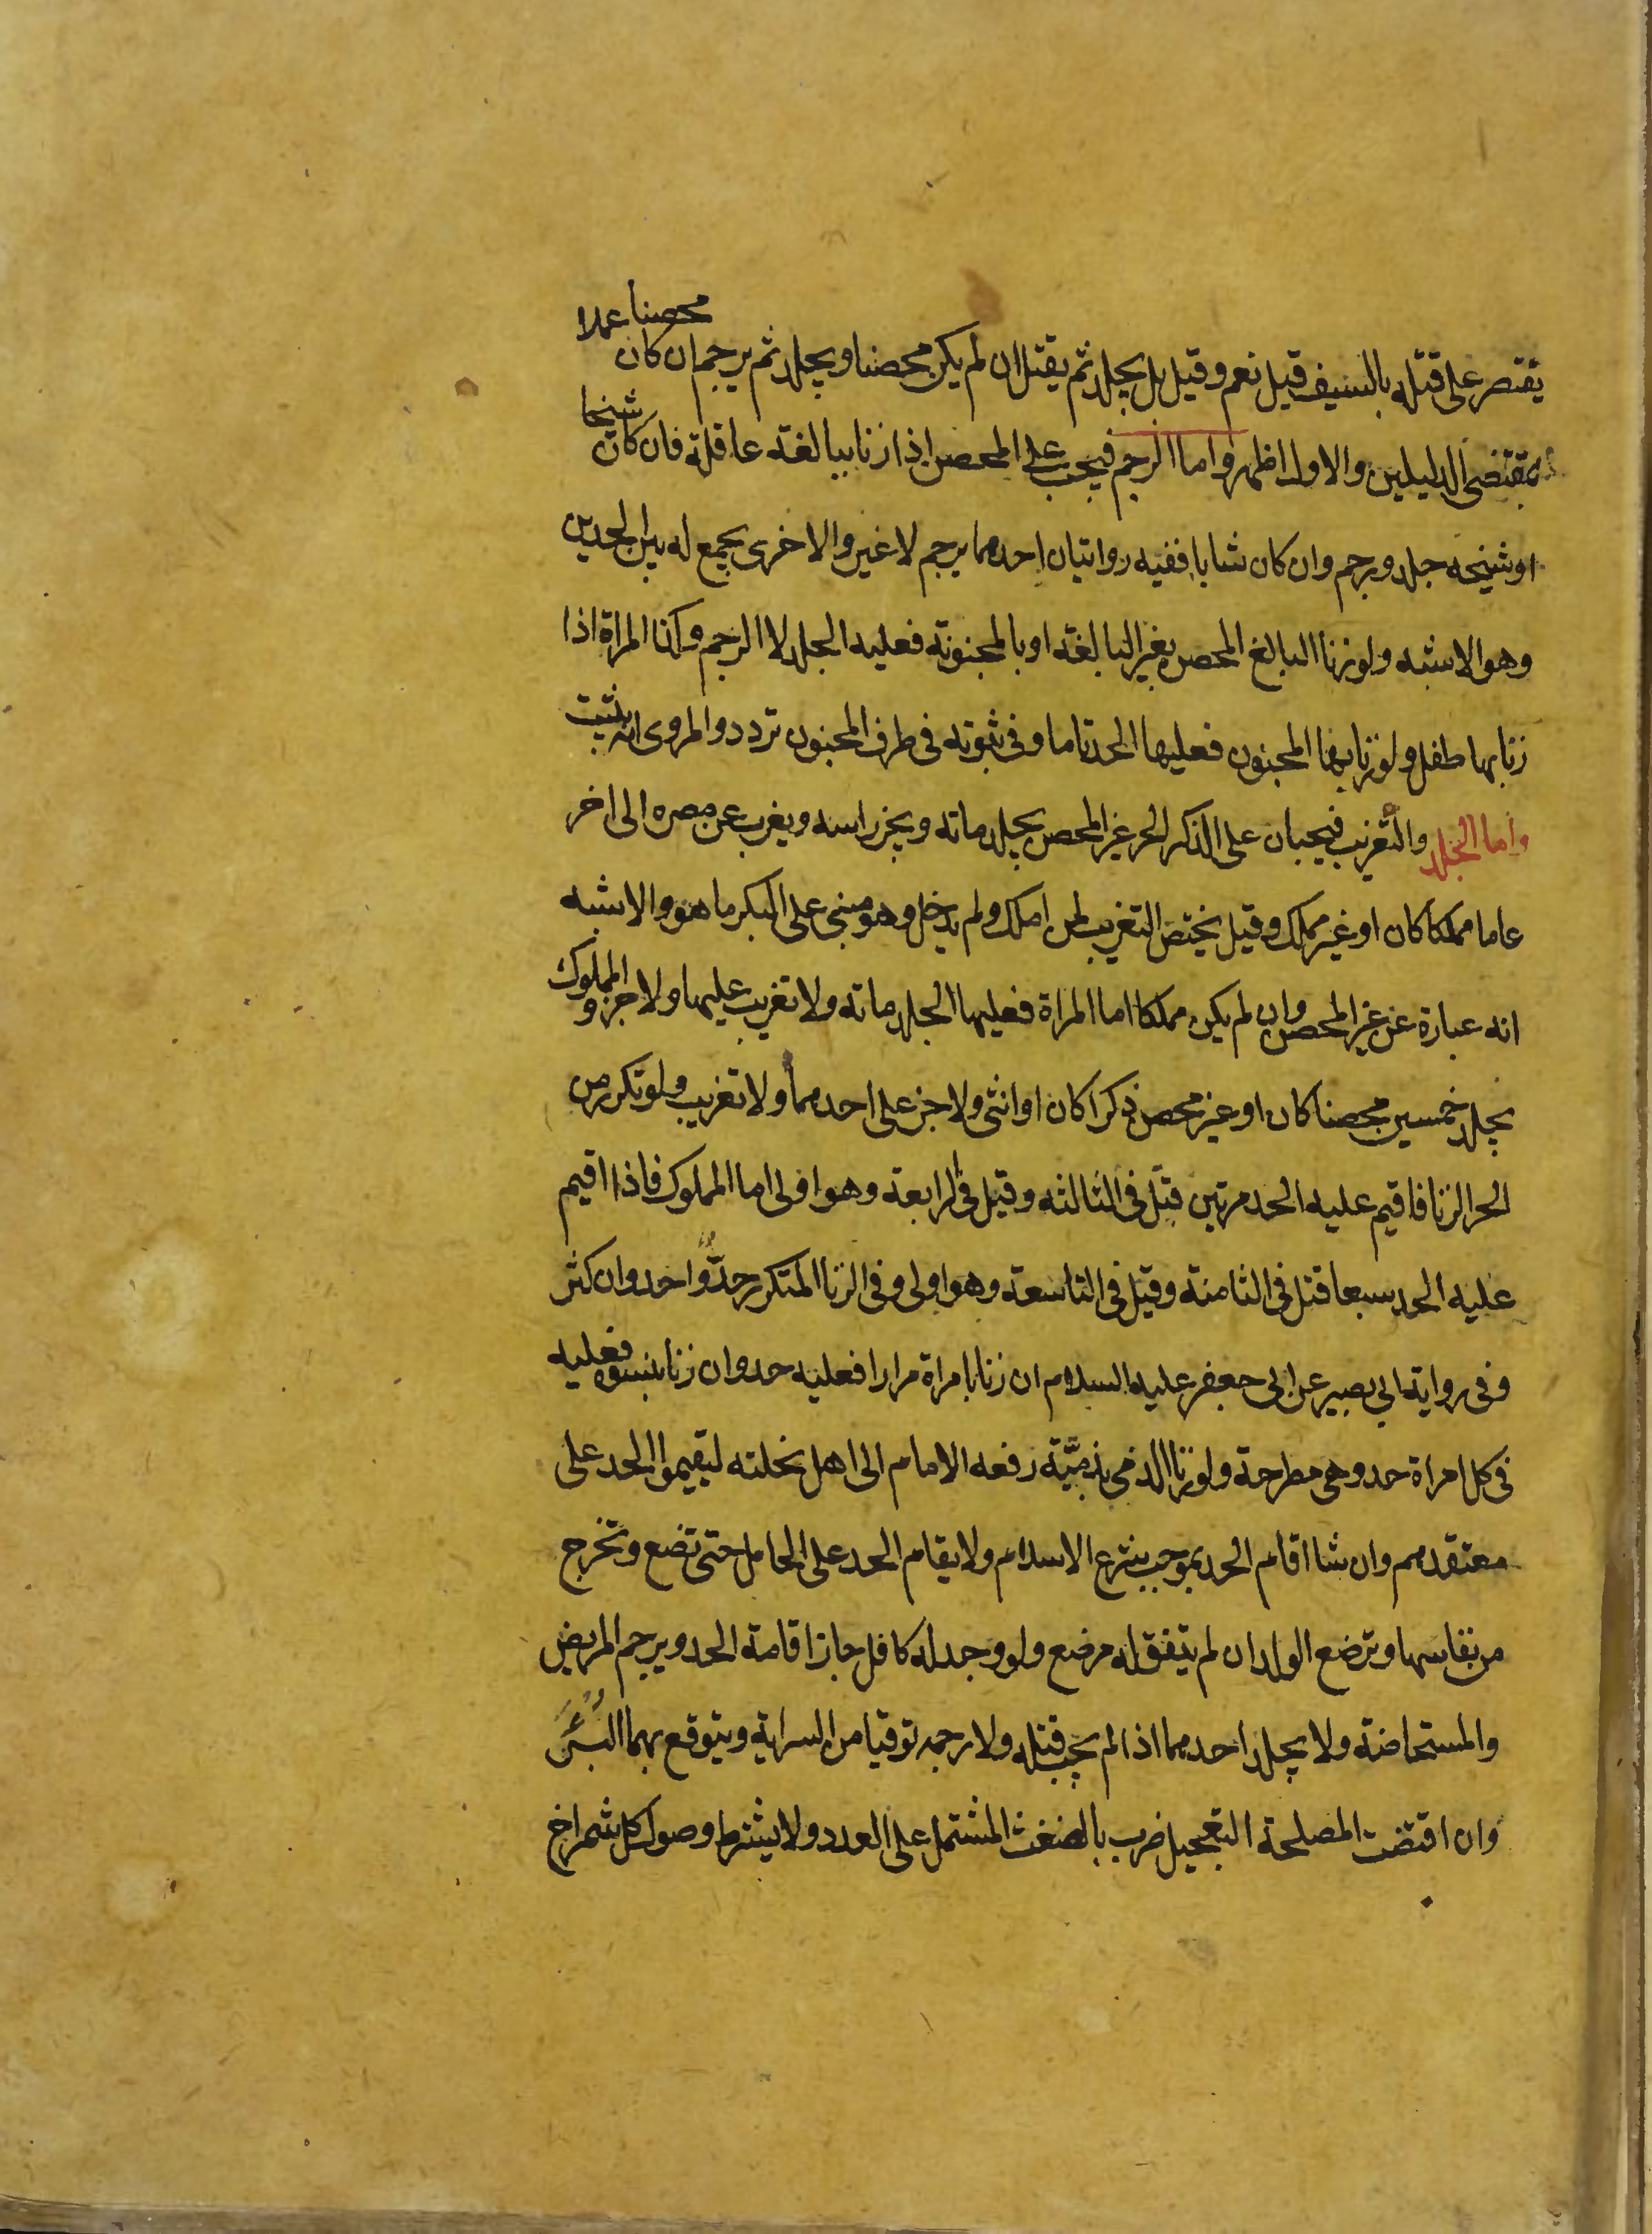 يقتصر على قتله بالسيف قيل نعم وقيل بل يجلد ثم يقتل ان لم يكن محصنا ويجلد ثم يرجم ان كان محصنا عملا
بمقتضى الدليلين والاول اظهر واما الرجم فيجب على المحصن اذا زنا ببالغة عاقلة فان كان شيخا
او شيخه جلد ورجم وان كان شابا ففيه روايتان احدهما يرجم لا غير والاخرى يجمع له بين الحدين
وهو الاشبه ولو زنا البالغ المحصن بغير البالغة او بالمجنونة فعليه الجلد لا الرجم وكذا المراة اذا
زنا بها طفل ولو زنا بها المجنون فعليها الحد تاما وفى ثبوته فى طرف المجنون تردد والمروى انه يثبت
واما الجلد والتغريب فيجبان على الذكر الحر غير المحصن يجلد مائه ويجز راسه ويغرب عن مصره الى اخر
عاما مملكا كان او غير مملك وقيل يختص التغريب لمن املك ولم يدخل وهو مبنى على البكر ما هو والاشبه
انه عبارة عن غير المحصن وان لم يكن مملكا اما المراة فعليها الجلد مائه ولا تغريب عليها ولا جز والمملوك
يجلد خمسين محصنا كان او غير محصن ذكرا كان او انثى ولا جز على احدهما ولا تغريب ولو تكرر من
الحر الزنا فاقيم عليه الحد مرتين قتل فى الثالثه وقيل فى الرابعة وهو اولى اما المملوك فاذا اقيم
عليه الحد سبعا قتل فى الثامنة وقيل فى التاسعة وهو اولى وفى الزنا المتكرر حدّ واحد وان كثر
وفى رواية ابي بصير عن ابى جعفر عليه السلام ان زنا بامراة مرارا فعليه حد وان زنا بنسوة فعليه
فى كل امراة حد وهى مطرحة ولو زنا الذمى بذميّة رفعه الامام الى اهل نحلته ليقيموا الحد على
معتقدهم وان شا اقام الحد بموجب شرع الاسلام ولا يقام الحد على الحامل حتى تضع وتخرج
من نفاسها وترضع الولد ان لم يتفق له مرضع ولو وجد له كافل جاز اقامة الحد ويرجم المريض
والمستحاضة ولا يجلد احدهما اذا لم يجب قتله ولا رجمه توقيا من السراية ويتوقع بهما البُرْء
وان اقتضت المصلحة التعجيل ضرب بالضغث المشتمل على العدد ولا يشترط وصول كل شمراخ